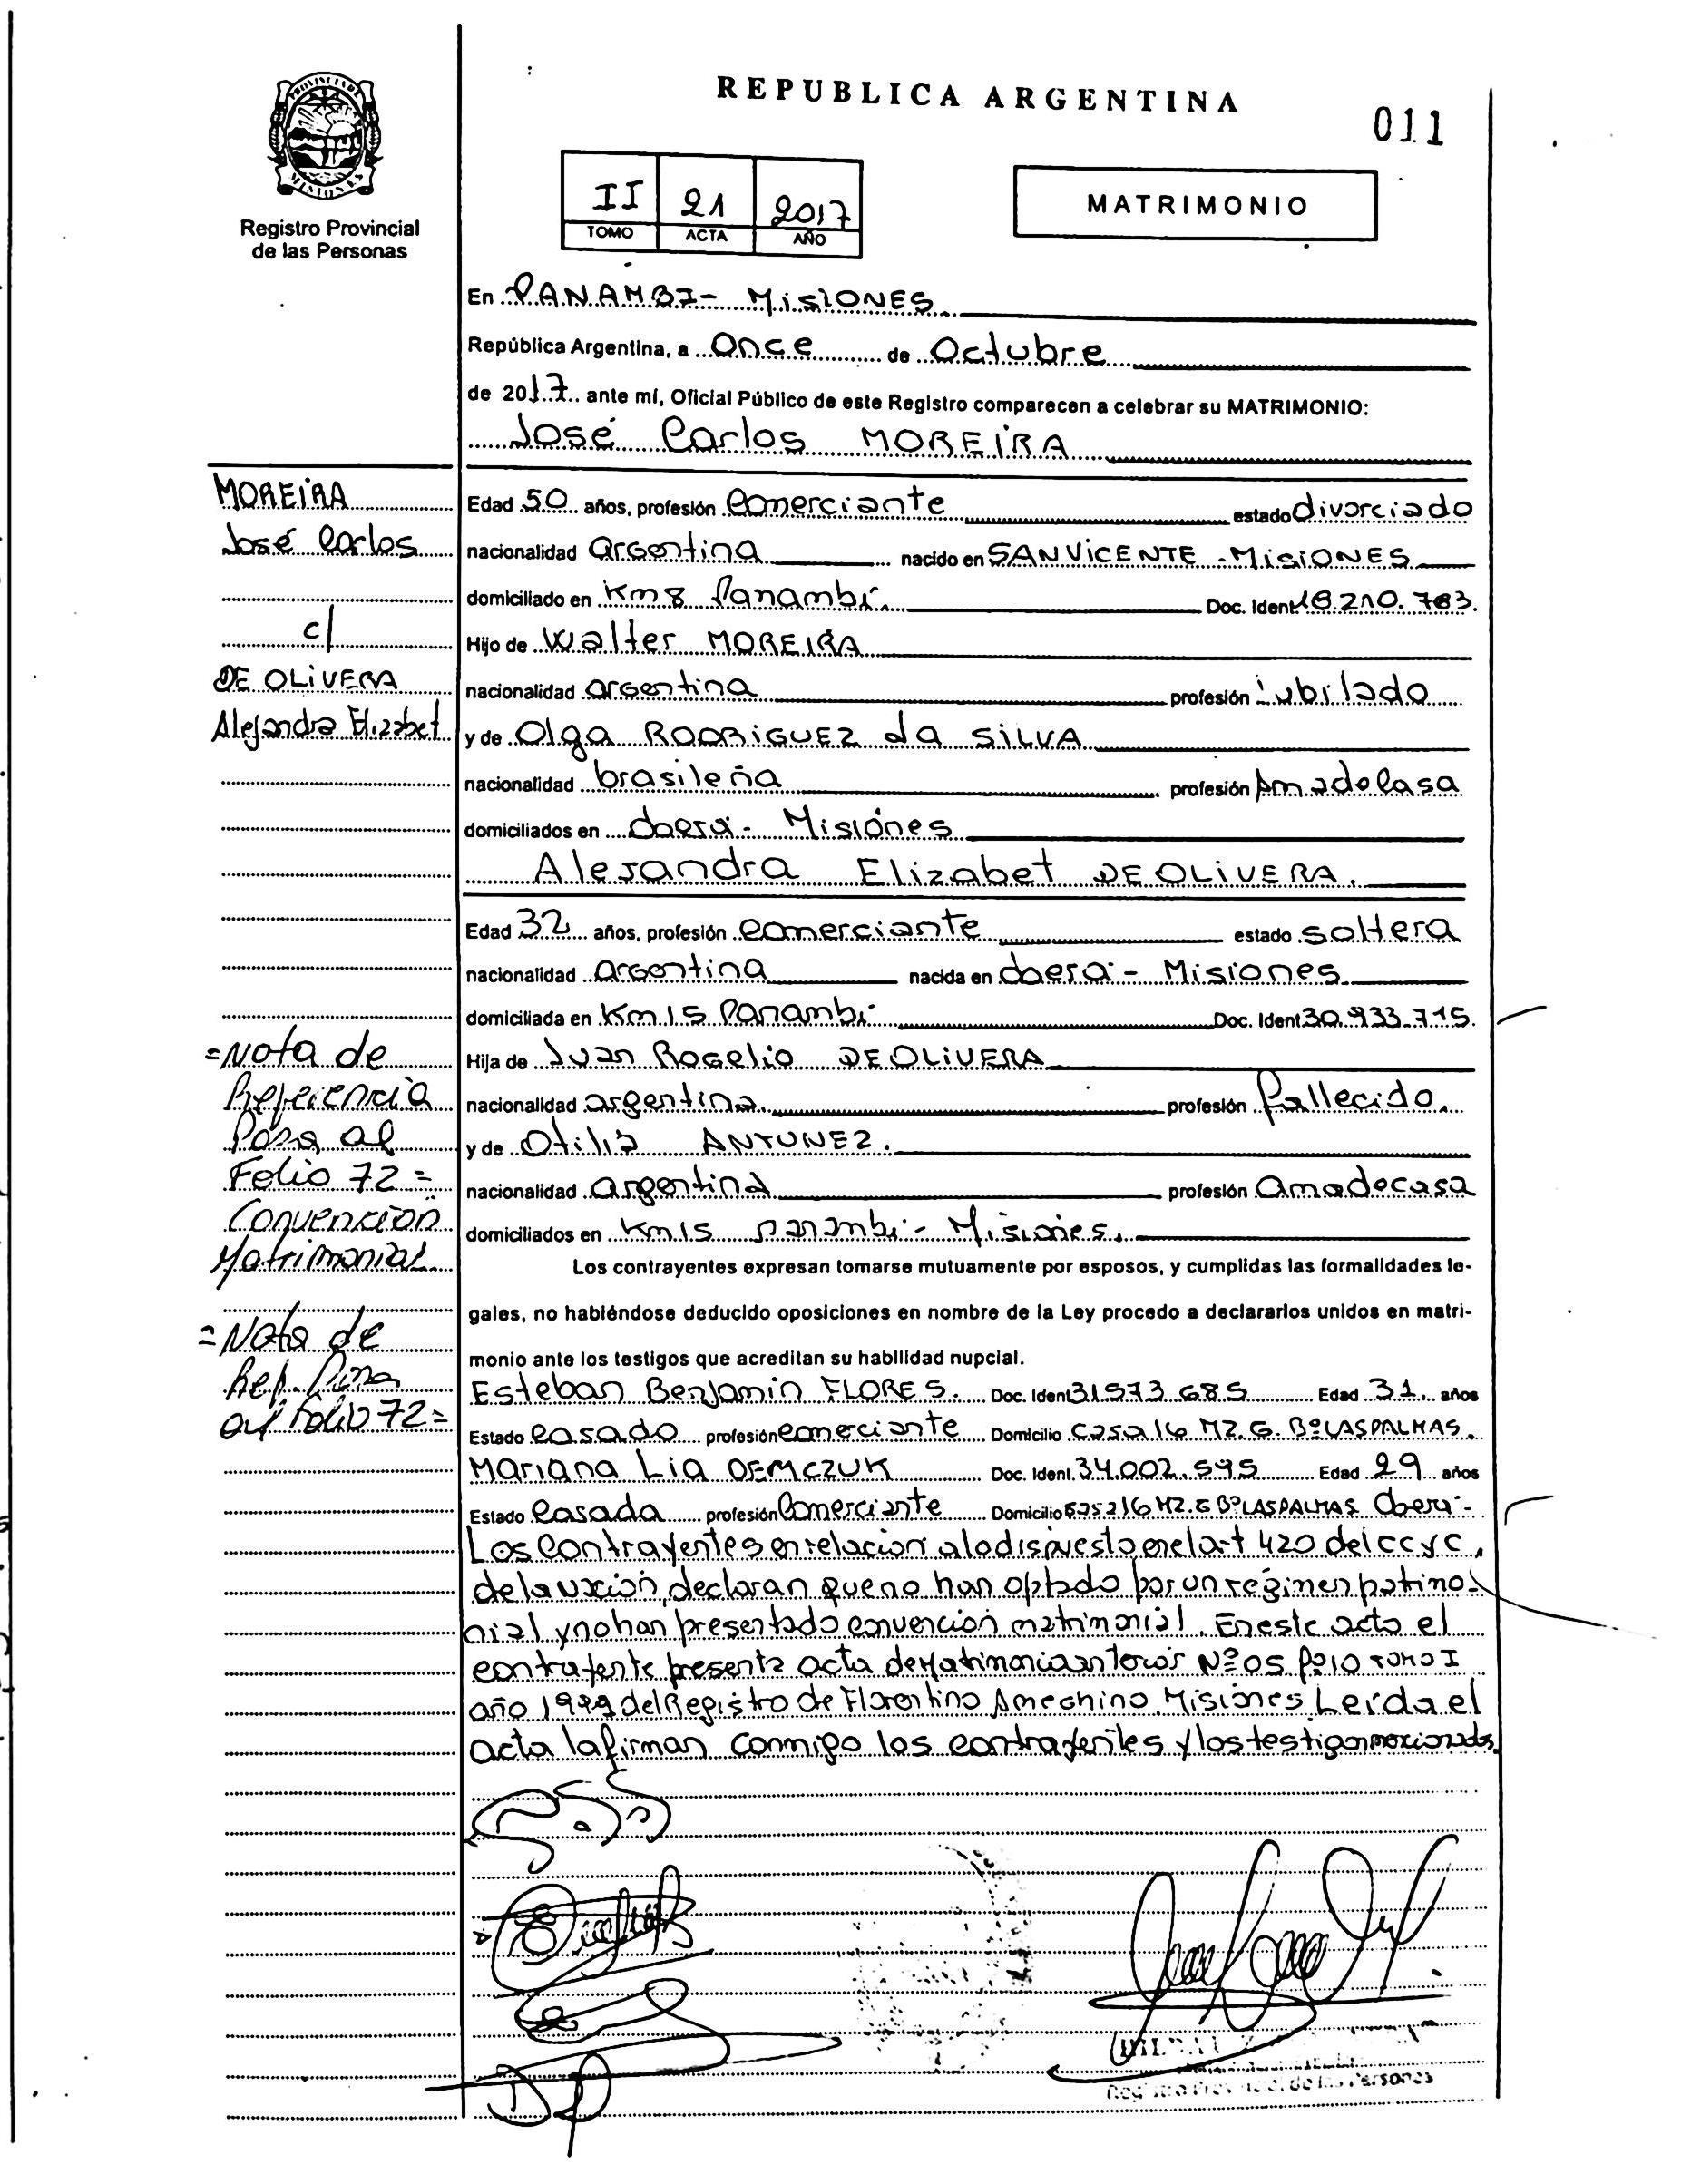 REPUBLICA ARGENTINA
011
PROVINCIA DE
MISIONES
Registro Provincial
de las Personas
II 21 2017
TOMO ACTA AÑO
MATRIMONIO
En PANAMBI - MisiONES
República Argentina, a Once de Octubre
de 2017 ante mí, Oficial Público de este Registro comparecen a celebrar su MATRIMONIO:
José Carlos MOREIRA
MOREIRA
José Carlos
c/
DE OLIVERA
Alejandra Elizabet
Edad 50 años, profesión Comerciante estado divorciado
nacionalidad argentina nacido en SAN VICENTE - MISIONES
domiciliado en Km 8 Panambí. Doc. Ident. 18.210.783.
Hijo de Walter MOREIRA
nacionalidad argentina profesión jubilado
y de Olga RODRIGUEZ da SILVA
nacionalidad brasileña profesión Ama de Casa
domiciliados en Oberá - Misiones
Alejandra Elizabet DE OLIVERA.
Edad 32 años, profesión Comerciante estado soltera
nacionalidad argentina nacida en Oberá - Misiones
domiciliada en Km 15 Panambí Doc. Ident. 30.933.715.
Hija de Juan Rogelio DE OLIVERA
nacionalidad argentina. profesión fallecido.
y de Otilia ANTUNEZ.
nacionalidad argentina profesión ama de casa
domiciliados en Km 15 Panambí - Misiones.
=Nota de
Referencia
Pasa al
Folio 72=
Convención
Matrimonial
=Nota de
Ref. Pasa
al Folio 72=
Los contrayentes expresan tomarse mutuamente por esposos, y cumplidas las formalidades le-
gales, no habiéndose deducido oposiciones en nombre de la Ley procedo a declararlos unidos en matri-
monio ante los testigos que acreditan su habilidad nupcial.
Esteban Benjamin FLORES. Doc. Ident. 31.573.685 Edad 31. años
Estado Casado profesión Comerciante Domicilio Casa 16 MZ. G. Bº LAS PALMAS.
Mariana Lia DEMCZUK Doc. Ident. 34.002.595 Edad 29 años
Estado Casada profesión Comerciante Domicilio Casa 16 MZ. G Bº LAS PALMAS Oberá -
Los Contrayentes en relación a lo dispuesto en el art 420 del CC y C.
de la nación, declaran que no han optado por un régimen patrimo-
nial y no han presentado convención matrimonial. En este acto el
contrayente presenta acta de Matrimonio anterior Nº 05 Fº 10 TOMO I
año del Registro de Florentino Ameghino. Misiones. Leída el
acta la firman conmigo los contrayentes y los testigos mencionados.
Registro Provincial de las Personas